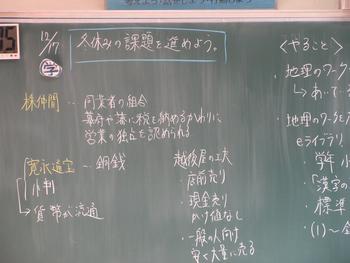 12/17
学
冬休みの課題を進めよう。
株仲間 ― 同業者の組合
幕府や藩に税を納めるかわりに
営業の独占を認められる
寛永通宝 ― 銅銭
小判
→貨幣が流通
越後屋の工夫
・店前売り
・現金売り
かけ値なし
・一般の人向け
安く大量に売る
<やること>
・地理のワーク
→あいて
・地理のワーク
eライブラリ
・学年
・「漢字の
・標準
・(1)〜